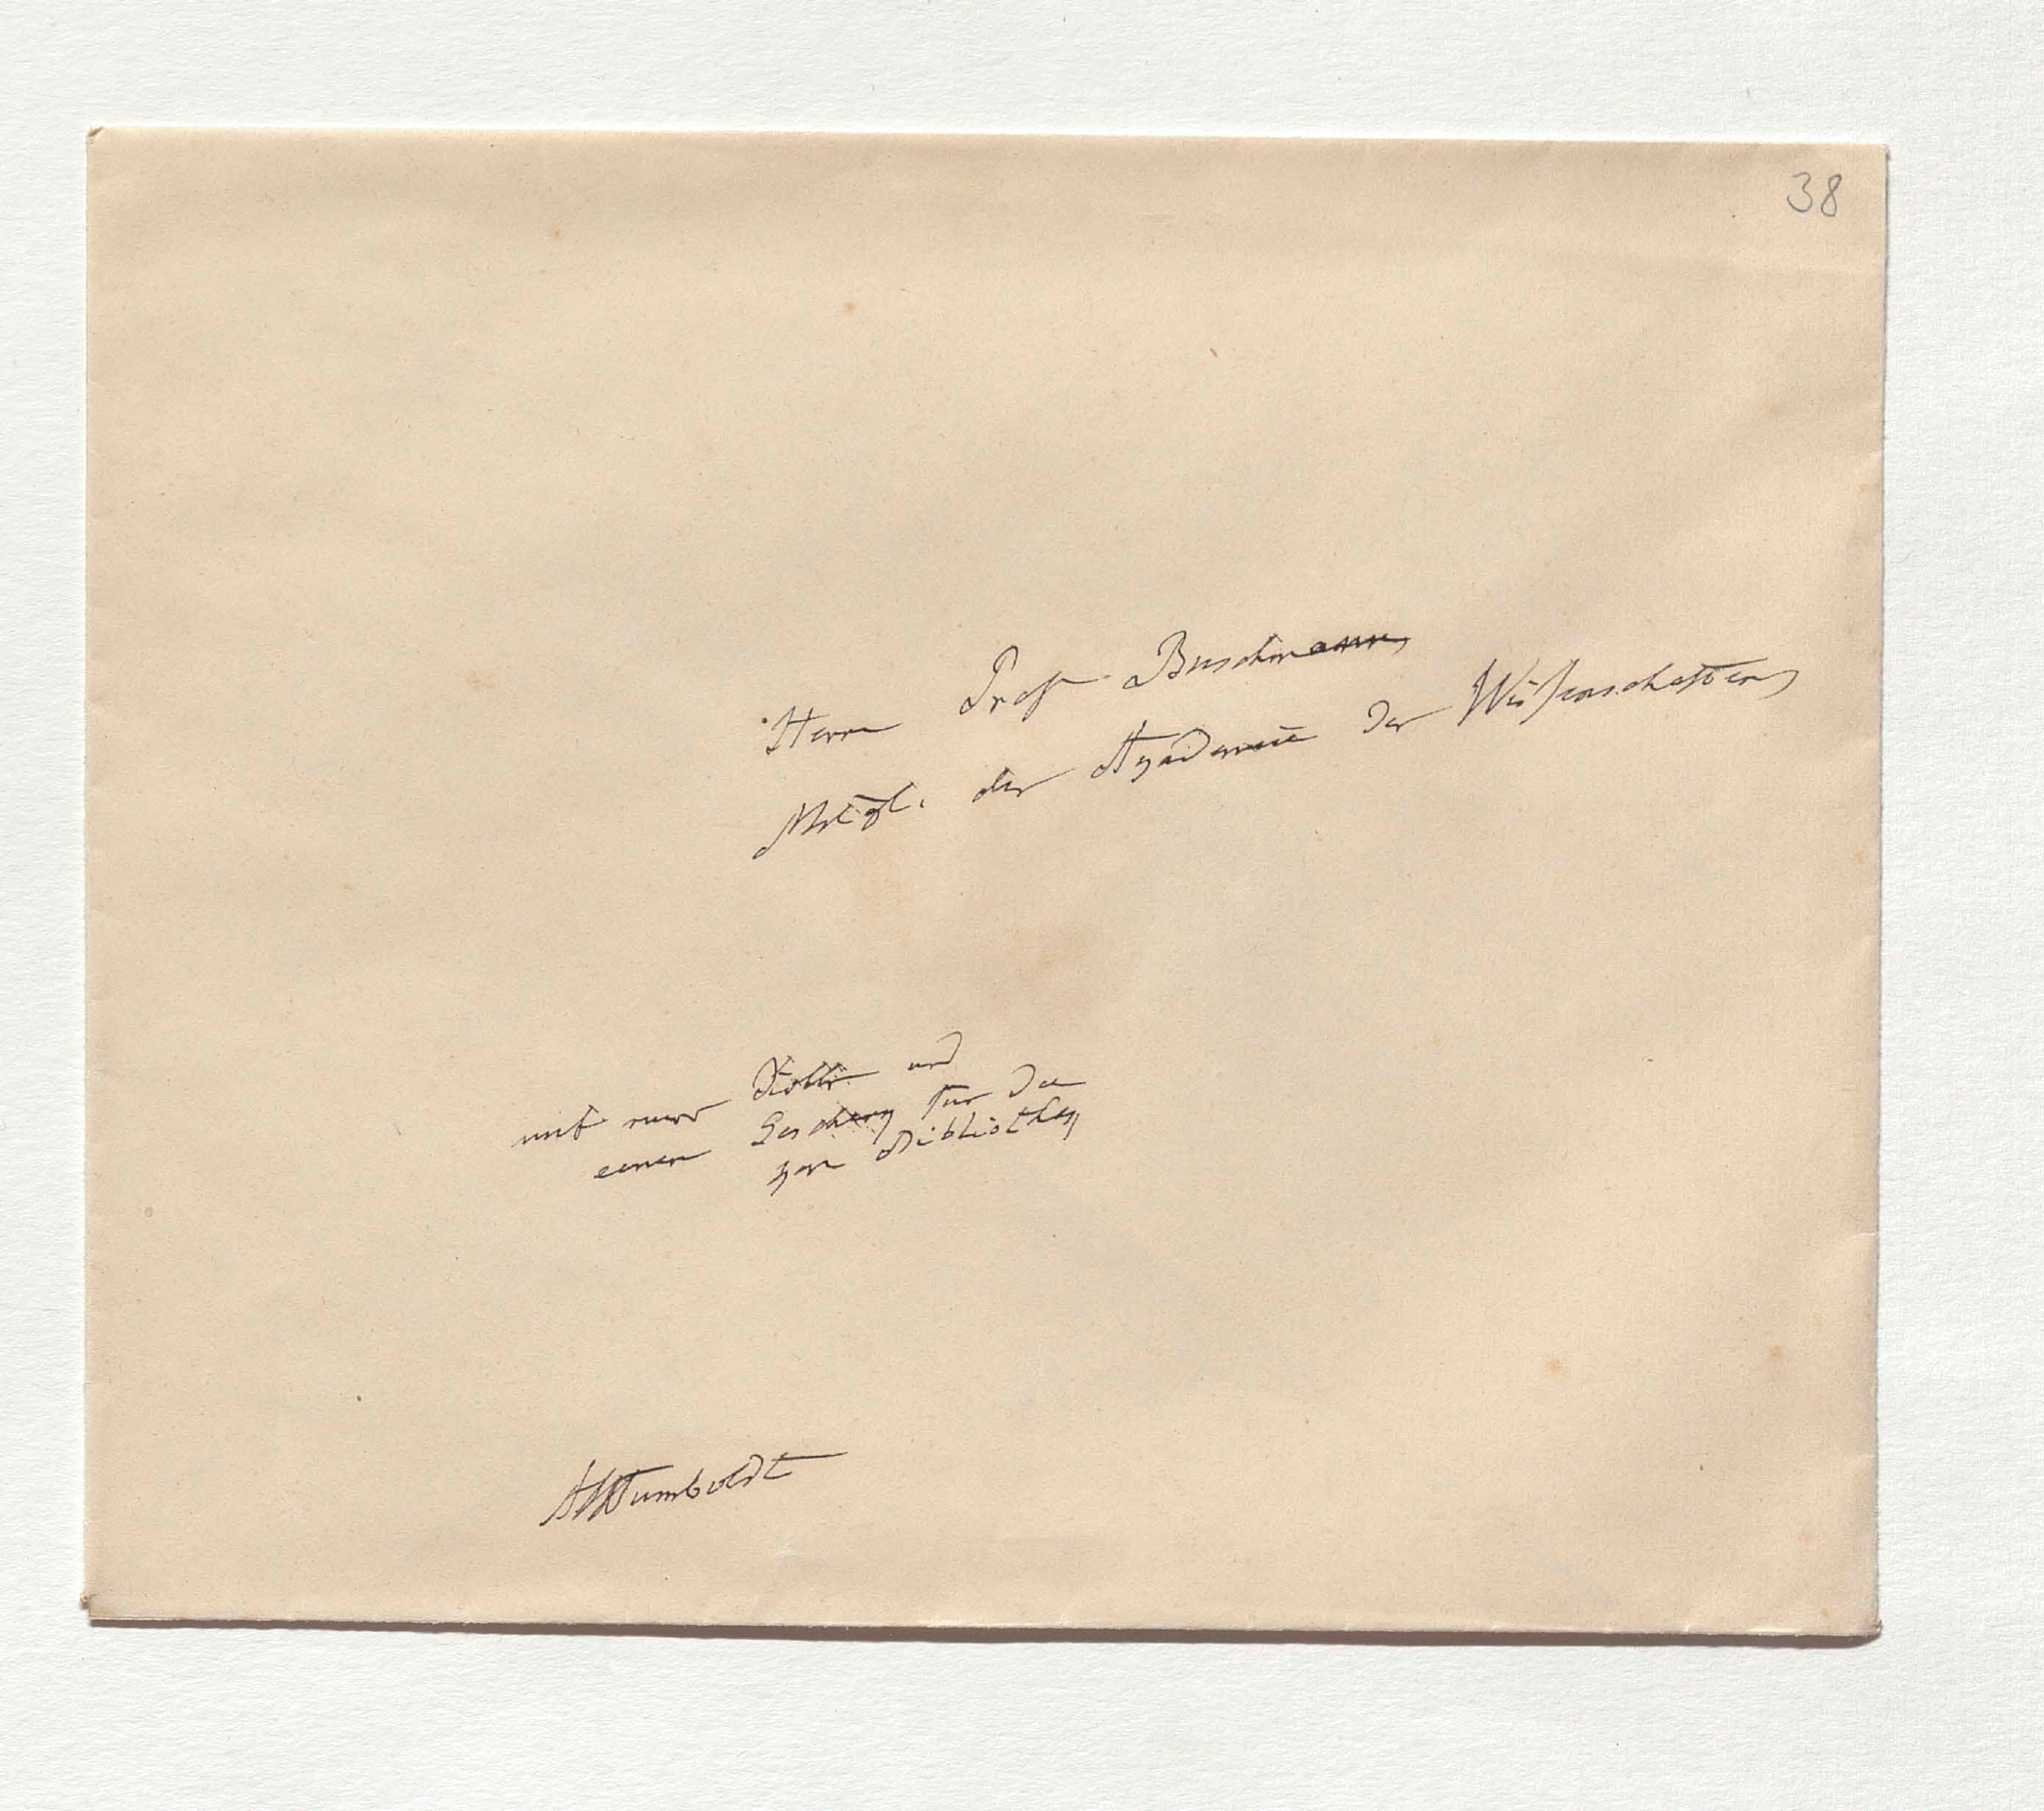 38
Herrn Prof Buschmann
Mitgl. der Akademie der Wissenschaften
mit einer Rolle und
einem Geschenk für die
kön Bibliothek
AlHumboldt